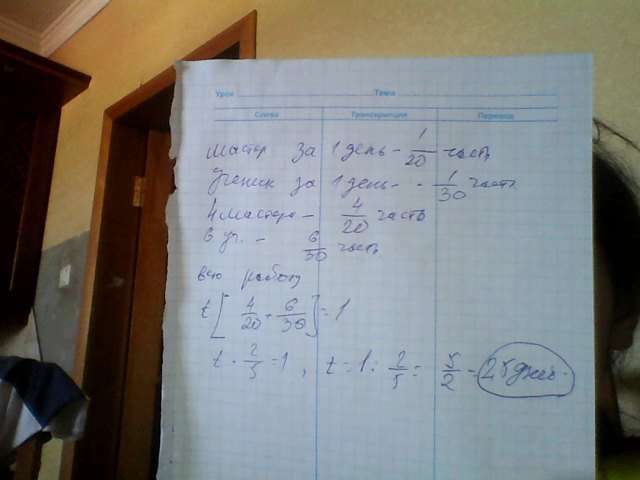 Урок Тема
Слова Транскрипция Перевод
Мастер за 1 день - 1/20 часть
Ученик за 1 день - - 1/30 часть
4 мастера - 4/20 часть
6 уч. - 6/30 часть
всю работу
t[4/20 + 6/30] = 1
t · 2/5 = 1, t = 1 : 2/5 = 5/2 = 2,5 дней.